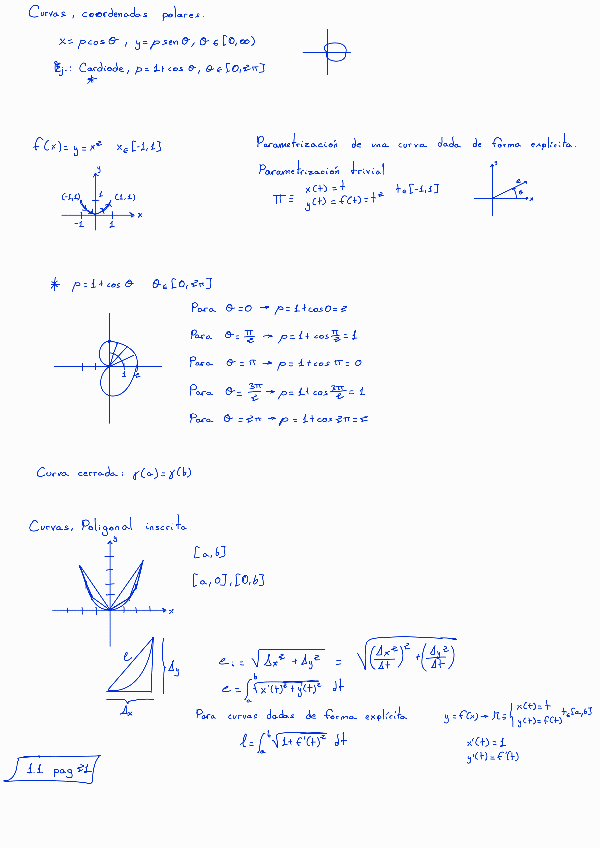 Curvas, coordenadas polares.
x = ρ cos θ, y = ρ sen θ, θ ∈ [0, ∞)
Ej.: Cardiode, ρ = 1 + cos θ, θ ∈ [0, 2π]
*
f(x) = y = x² x ∈ [-1, 1]
Parametrización de una curva dada de forma explícita.
Parametrización trivial
π ≡ x(t) = t
y(t) = f(t) = t² t ∈ [-1, 1]
y
(-1,1) 1 (1,1)
-1 1 x
θ
x
* ρ = 1 + cos θ θ ∈ [0, 2π]
Para θ = 0 → ρ = 1 + cos 0 = 2
Para θ = π/2 → ρ = 1 + cos π/2 = 1
Para θ = π → ρ = 1 + cos π = 0
Para θ = 3π/2 → ρ = 1 + cos 3π/2 = 1
Para θ = 2π → ρ = 1 + cos 2π = 2
1 2
Curva cerrada: γ(a) = γ(b)
Curvas, Poligonal inscrita
y
[a, b]
[a, 0], [0, b]
x
ℓ Δy
Δx
ℓi = √(Δx² + Δy²) = √((Δx²/Δt)² + (Δy²/Δt))
ℓ = ∫ₐᵇ √(x'(t)² + y(t)²) dt
Para curvas dadas de forma explícita
y = f(x) → π ≡ { x(t) = t
y(t) = f(t) t ∈ [a, b]
l = ∫ₐᵇ √(1 + f'(t)²) dt
x'(t) = 1
y'(t) = f'(t)
1.1 pag 21